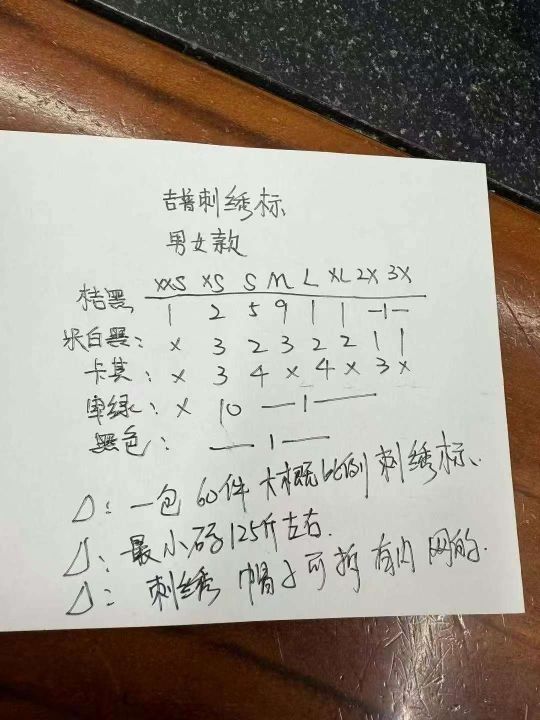 吉普刺绣标
男女款
XXS XS S M L XL 2X 3X
桔黑 1 2 5 9 1 1 —1—
米白黑: x 3 2 3 2 2 1 1
卡其: x 3 4 x 4 x 3 x
军绿: x 10 —1—
黑色: —1—
△: 一包60件大概比例 刺绣标.
△: 最小码125斤左右.
△: 刺绣 帽子可拆 有内网的.